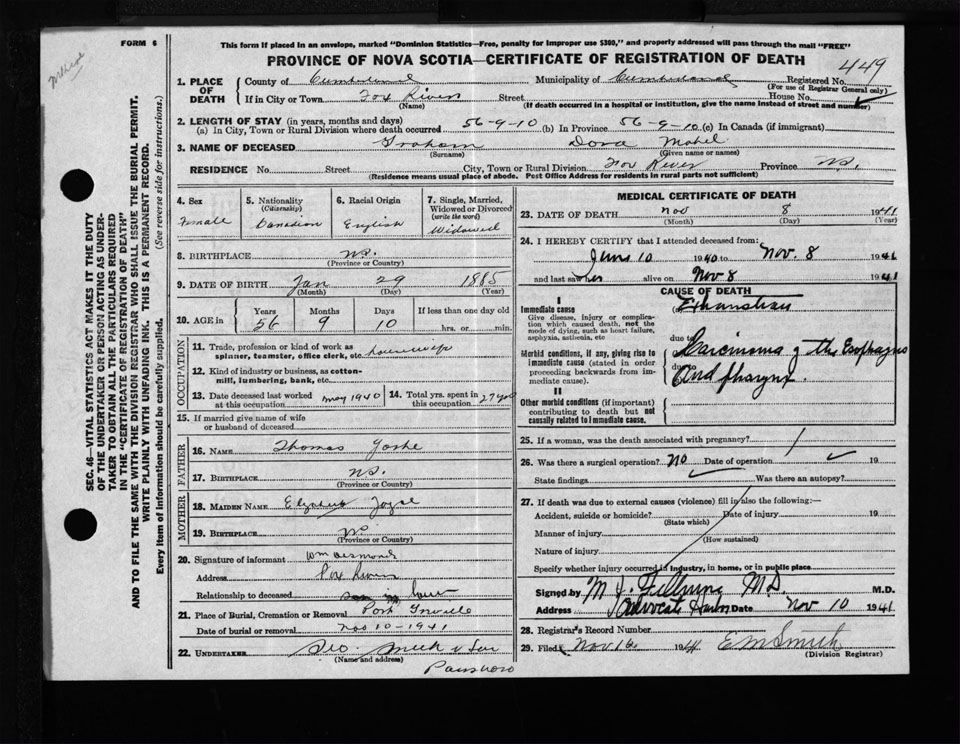 FORM 6
This form if placed in an envelope, marked "Dominion Statistics—Free, penalty for improper use $300," and properly addressed will pass through the mail "FREE"
PROVINCE OF NOVA SCOTIA—CERTIFICATE OF REGISTRATION OF DEATH
449
1. PLACE OF DEATH
County of Cumberland Municipality of Cumberland Registered No.
(For use of Registrar General only)
If in City or Town Fox River Street House No.
(Name) (If death occurred in a hospital or institution, give the name instead of street and number)
2. LENGTH OF STAY (in years, months and days)
(a) In City, Town or Rural Division where death occurred 56-9-10 (b) In Province 56-9-10 (c) In Canada (if immigrant)
3. NAME OF DECEASED Graham Dora Mabel
(Surname) (Given name or names)
RESIDENCE No. Street City, Town or Rural Division Fox River Province N.S.
(Residence means usual place of abode. Post Office Address for residents in rural parts not sufficient)
4. Sex Female
5. Nationality (Citizenship) Canadian
6. Racial Origin English
7. Single, Married, Widowed or Divorced (write the word) Widowed
8. BIRTHPLACE N.S.
(Province or Country)
9. DATE OF BIRTH Jan 29 1885
(Month) (Day) (Year)
10. AGE in Years Months Days If less than one day old
56 9 10 hrs. or min.
OCCUPATION
11. Trade, profession or kind of work as spinner, teamster, office clerk, etc. housewife
12. Kind of industry or business, as cotton-mill, lumbering, bank, etc.
13. Date deceased last worked at this occupation May 1940
14. Total yrs. spent in this occupation 27 yrs
15. If married give name of wife or husband of deceased
FATHER
16. NAME Thomas
17. BIRTHPLACE N.S.
(Province or Country)
MOTHER
18. MAIDEN NAME Elizabeth
19. BIRTHPLACE N.S.
(Province or Country)
20. Signature of informant Wm Desmond
Address Fox River
Relationship to deceased son in law
21. Place of Burial, Cremation or Removal Port Greville
Date of burial or removal Nov 10-1941
22. UNDERTAKER Geo. Smith & Son
(Name and address)
Parrsboro
MEDICAL CERTIFICATE OF DEATH
23. DATE OF DEATH Nov 8 1941
(Month) (Day) (Year)
24. I HEREBY CERTIFY that I attended deceased from:
June 10 1940 to Nov. 8 1941
and last saw her alive on Nov 8 1941
CAUSE OF DEATH
I
Immediate cause
Give disease, injury or complication which caused death, not the mode of dying, such as heart failure, asphyxia, asthenia, etc
(a) Exhaustion
due to
Morbid conditions, if any, giving rise to immediate cause (stated in order proceeding backwards from immediate cause).
(b) Carcinoma of the Esophagus
due to
(c) and pharynx.
II
Other morbid conditions (if important) contributing to death but not causally related to immediate cause.
25. If a woman, was the death associated with pregnancy?
26. Was there a surgical operation? No Date of operation 19
State findings Was there an autopsy?
27. If death was due to external causes (violence) fill in also the following:
Accident, suicide or homicide? Date of injury 19
(State which)
Manner of injury
(How sustained)
Nature of injury
Specify whether injury occurred in industry, in home, or in public place
Signed by M.D. M.D.
Address Advocate Harbor Date Nov 10 1941
28. Registrar's Record Number
29. Filed Nov 16 1941 E M Smith
(Division Registrar)
SEC. 46—VITAL STATISTICS ACT MAKES IT THE DUTY
OF THE UNDERTAKER OR PERSON ACTING AS UNDER-
TAKER TO OBTAIN ALL THE PARTICULARS REQUIRED
IN THE "CERTIFICATE OF REGISTRATION OF DEATH"
AND TO FILE THE SAME WITH THE DIVISION REGISTRAR WHO SHALL ISSUE THE BURIAL PERMIT.
WRITE PLAINLY WITH UNFADING INK. THIS IS A PERMANENT RECORD.
Every item of information should be carefully supplied. (See reverse side for instructions.)